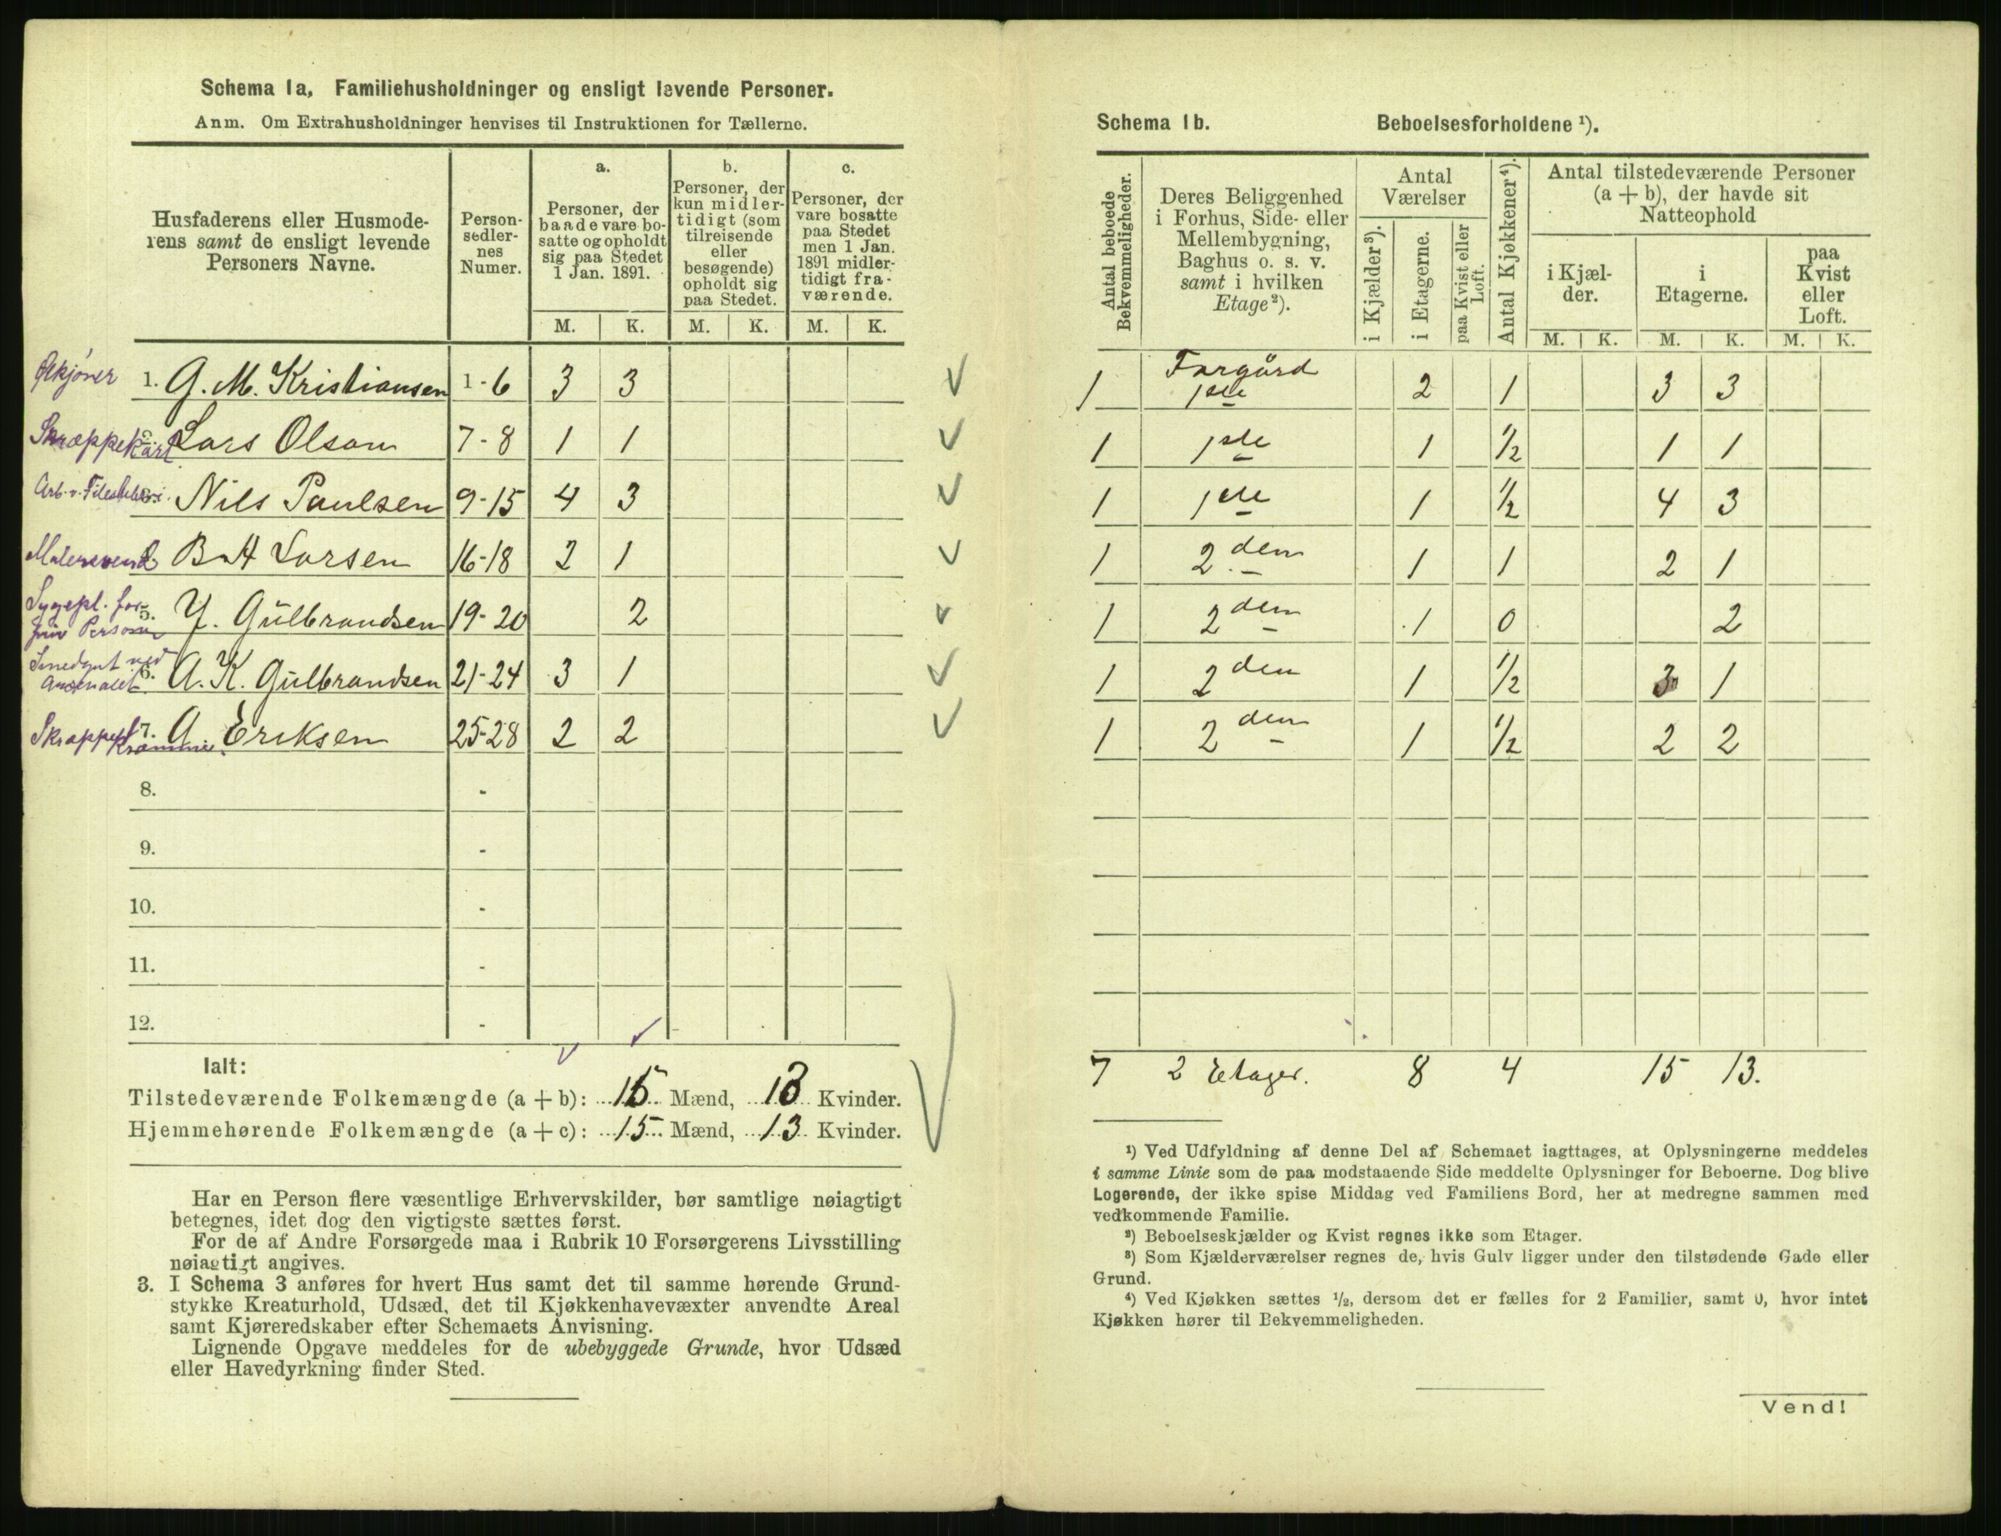 Schema 1a, Familiehusholdninger og ensligt levende Personer.
Anm. Om Extrahusholdninger henvises til Instruktionen for Tællerne.
Husfaderens eller Husmode-
rens samt de ensligt levende
Personers Navne.
Person-
sedler-
nes
Numer.
a.
Personer, der
baade vare bo-
satte og opholdt
sig paa Stedet
1 Jan. 1891.
b.
Personer, der
kun midler-
tidigt (som
tilreisende
eller
besøgende)
opholdt sig
paa Stedet.
c.
Personer, der
vare bosatte
paa Stedet
men 1 Jan.
1891 midler-
tidigt fra-
værende.
M. K. M. K. M. K.
Ølkjører 1. G. M. Kristiansen 1-6 3 3
Skrappekarl Lars Olson 7-8 1 1
Arb. v. Nils Paulsen 9-15 4 3
Malersvend B H Larsen 16-18 2 1
Sygepl. for
priv Personer 5. Y. Gülbrandsen 19-20 2
Smedgut ved
Arsenalet 6. A. K. Gülbrandsen 21-24 3 1
7. A Eriksen 25-28 2 2
8. -
9. -
10. -
11. -
12. -
Ialt:
Tilstedeværende Folkemængde (a + b): 15 Mænd, 13 Kvinder.
Hjemmehørende Folkemængde (a + c): 15 Mænd, 13 Kvinder.
Har en Person flere væsentlige Erhvervskilder, bør samtlige nøiagtigt
betegnes, idet dog den vigtigste sættes først.
For de af Andre Forsørgede maa i Rubrik 10 Forsørgerens Livsstilling
nøiagtigt angives.
3. I Schema 3 anføres for hvert Hus samt det til samme hørende Grund-
stykke Kreaturhold, Udsæd, det til Kjøkkenhavevæxter anvendte Areal
samt Kjøreredskaber efter Schemaets Anvisning.
Lignende Opgave meddeles for de ubebyggede Grunde, hvor Udsæd
eller Havedyrkning finder Sted.
Schema 1b. Beboelsesforholdene ¹).
Antal beboede
Bekvemmeligheder.
Deres Beliggenhed
i Forhus, Side- eller
Mellembygning,
Baghus o. s. v.
samt i hvilken
Etage²).
Antal
Værelser
i Kjælder³).
i Etagerne.
paa Kvist eller
Loft.
Antal Kjøkkener⁴).
Antal tilstedeværende Personer
(a + b), der havde sit
Natteophold
i Kjæl-
der.
i
Etagerne.
paa
Kvist
eller
Loft.
M. K. M. K. M. K.
1 Forgård
1ste 2 1 3 3
1 1ste 1 1/2 1 1
1 1ste 1 1/2 4 3
1 2 den 1 1 2 1
1 2 den 1 0 2
1 2 den 1 1/2 3 1
1 2 den 1 1/2 2 2
7 2 Etager. 8 4 15 13.
¹) Ved Udfyldning af denne Del af Schemaet iagttages, at Oplysningerne meddeles
i samme Linie som de paa modstaaende Side meddelte Oplysninger for Beboerne. Dog blive
Logerende, der ikke spise Middag ved Familiens Bord, her at medregne sammen med
vedkommende Familie.
²) Beboelseskjælder og Kvist regnes ikke som Etager.
³) Som Kjælderværelser regnes de, hvis Gulv ligger under den tilstødende Gade eller
Grund.
⁴) Ved Kjøkken sættes ½, dersom det er fælles for 2 Familier, samt 0, hvor intet
Kjøkken hører til Bekvemmeligheden.
Vend!